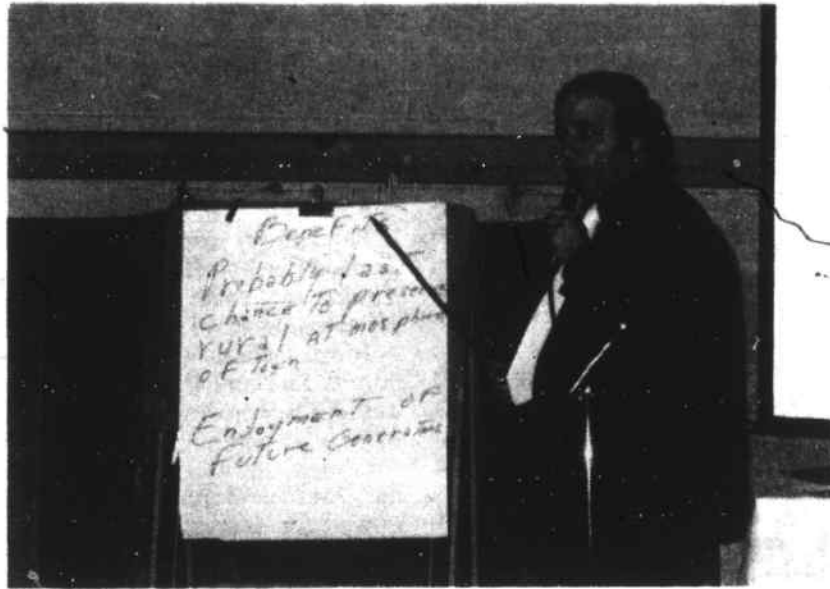 Benefits
Probably last
chance To preserve
rural ATmosphere
oF Town
EnJoyment oF
Future Generations